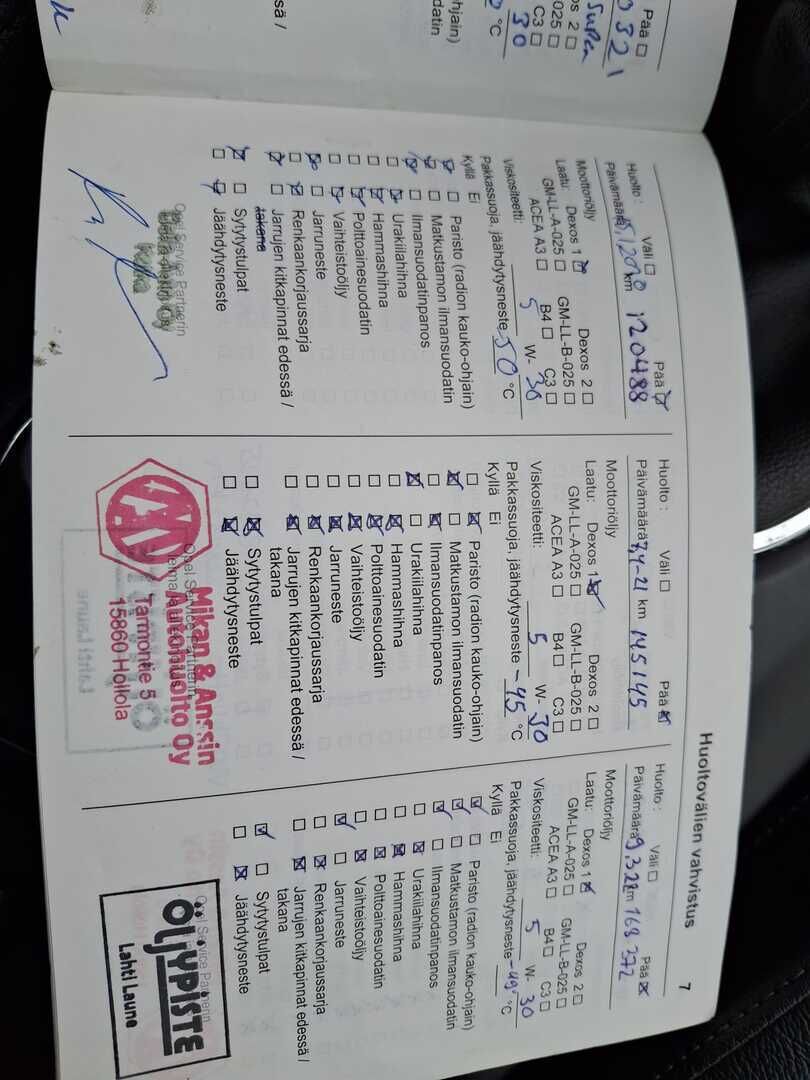 Huoltovälien vahvistus
7
Huolto : Väli ☐ Pää ☑
Päivämäärä km 120488
Moottoriöljy
Laatu: Dexos 1 ☑ Dexos 2 ☐
GM-LL-A-025 ☐ GM-LL-B-025 ☐
ACEA A3 ☐ B4 ☐ C3 ☐
Viskositeetti: 5 W- 30
Pakkassuoja, jäähdytysneste -50 °C
Kyllä Ei
☑ ☐ Paristo (radion kauko-ohjain)
☑ ☐ Matkustamon ilmansuodatin
☑ ☐ Ilmansuodatinpanos
☐ ☑ Urakiilahihna
☐ ☑ Hammashihna
☐ ☑ Polttoainesuodatin
☐ ☑ Vaihteistoöljy
☑ ☐ Jarruneste
☐ ☑ Renkaankorjaussarja
☑ ☐ Jarrujen kitkapinnat edessä /
takana
☑ ☐ Sytytystulpat
☐ ☑ Jäähdytysneste
Opel Service Partnerin
Huolto : Väli ☐ Pää ☒
Päivämäärä 7,4-21 km 145145
Moottoriöljy
Laatu: Dexos 1 ☑ Dexos 2 ☐
GM-LL-A-025 ☐ GM-LL-B-025 ☐
ACEA A3 ☐ B4 ☐ C3 ☐
Viskositeetti: 5 W- 30
Pakkassuoja, jäähdytysneste -45 °C
Kyllä Ei
☐ ☒ Paristo (radion kauko-ohjain)
☒ ☐ Matkustamon ilmansuodatin
☐ ☒ Ilmansuodatinpanos
☒ ☐ Urakiilahihna
☐ ☒ Hammashihna
☐ ☒ Polttoainesuodatin
☐ ☒ Vaihteistoöljy
☐ ☒ Jarruneste
☐ ☒ Renkaankorjaussarja
☐ ☒ Jarrujen kitkapinnat edessä /
takana
☐ ☒ Sytytystulpat
☐ ☒ Jäähdytysneste
Opel Service Partnerin
Mikan & Anssin
Autohuolto Oy
Tarmontie 5
15860 Hollola
Huolto : Väli ☐ Pää ☒
Päivämäärä 9.3.22 km 168 372
Moottoriöljy
Laatu: Dexos 1 ☒ Dexos 2 ☐
GM-LL-A-025 ☐ GM-LL-B-025 ☐
ACEA A3 ☐ B4 ☐ C3 ☐
Viskositeetti: 5 W- 30
Pakkassuoja, jäähdytysneste -49 °C
Kyllä Ei
☑ ☐ Paristo (radion kauko-ohjain)
☑ ☐ Matkustamon ilmansuodatin
☑ ☐ Ilmansuodatinpanos
☐ ☒ Urakiilahihna
☐ ☒ Hammashihna
☐ ☒ Polttoainesuodatin
☐ ☒ Vaihteistoöljy
☑ ☐ Jarruneste
☐ ☒ Renkaankorjaussarja
☐ ☒ Jarrujen kitkapinnat edessä /
takana
☑ ☐ Sytytystulpat
☐ ☒ Jäähdytysneste
Opel Service Partnerin
ÖLJYPISTE
Lahti Laune